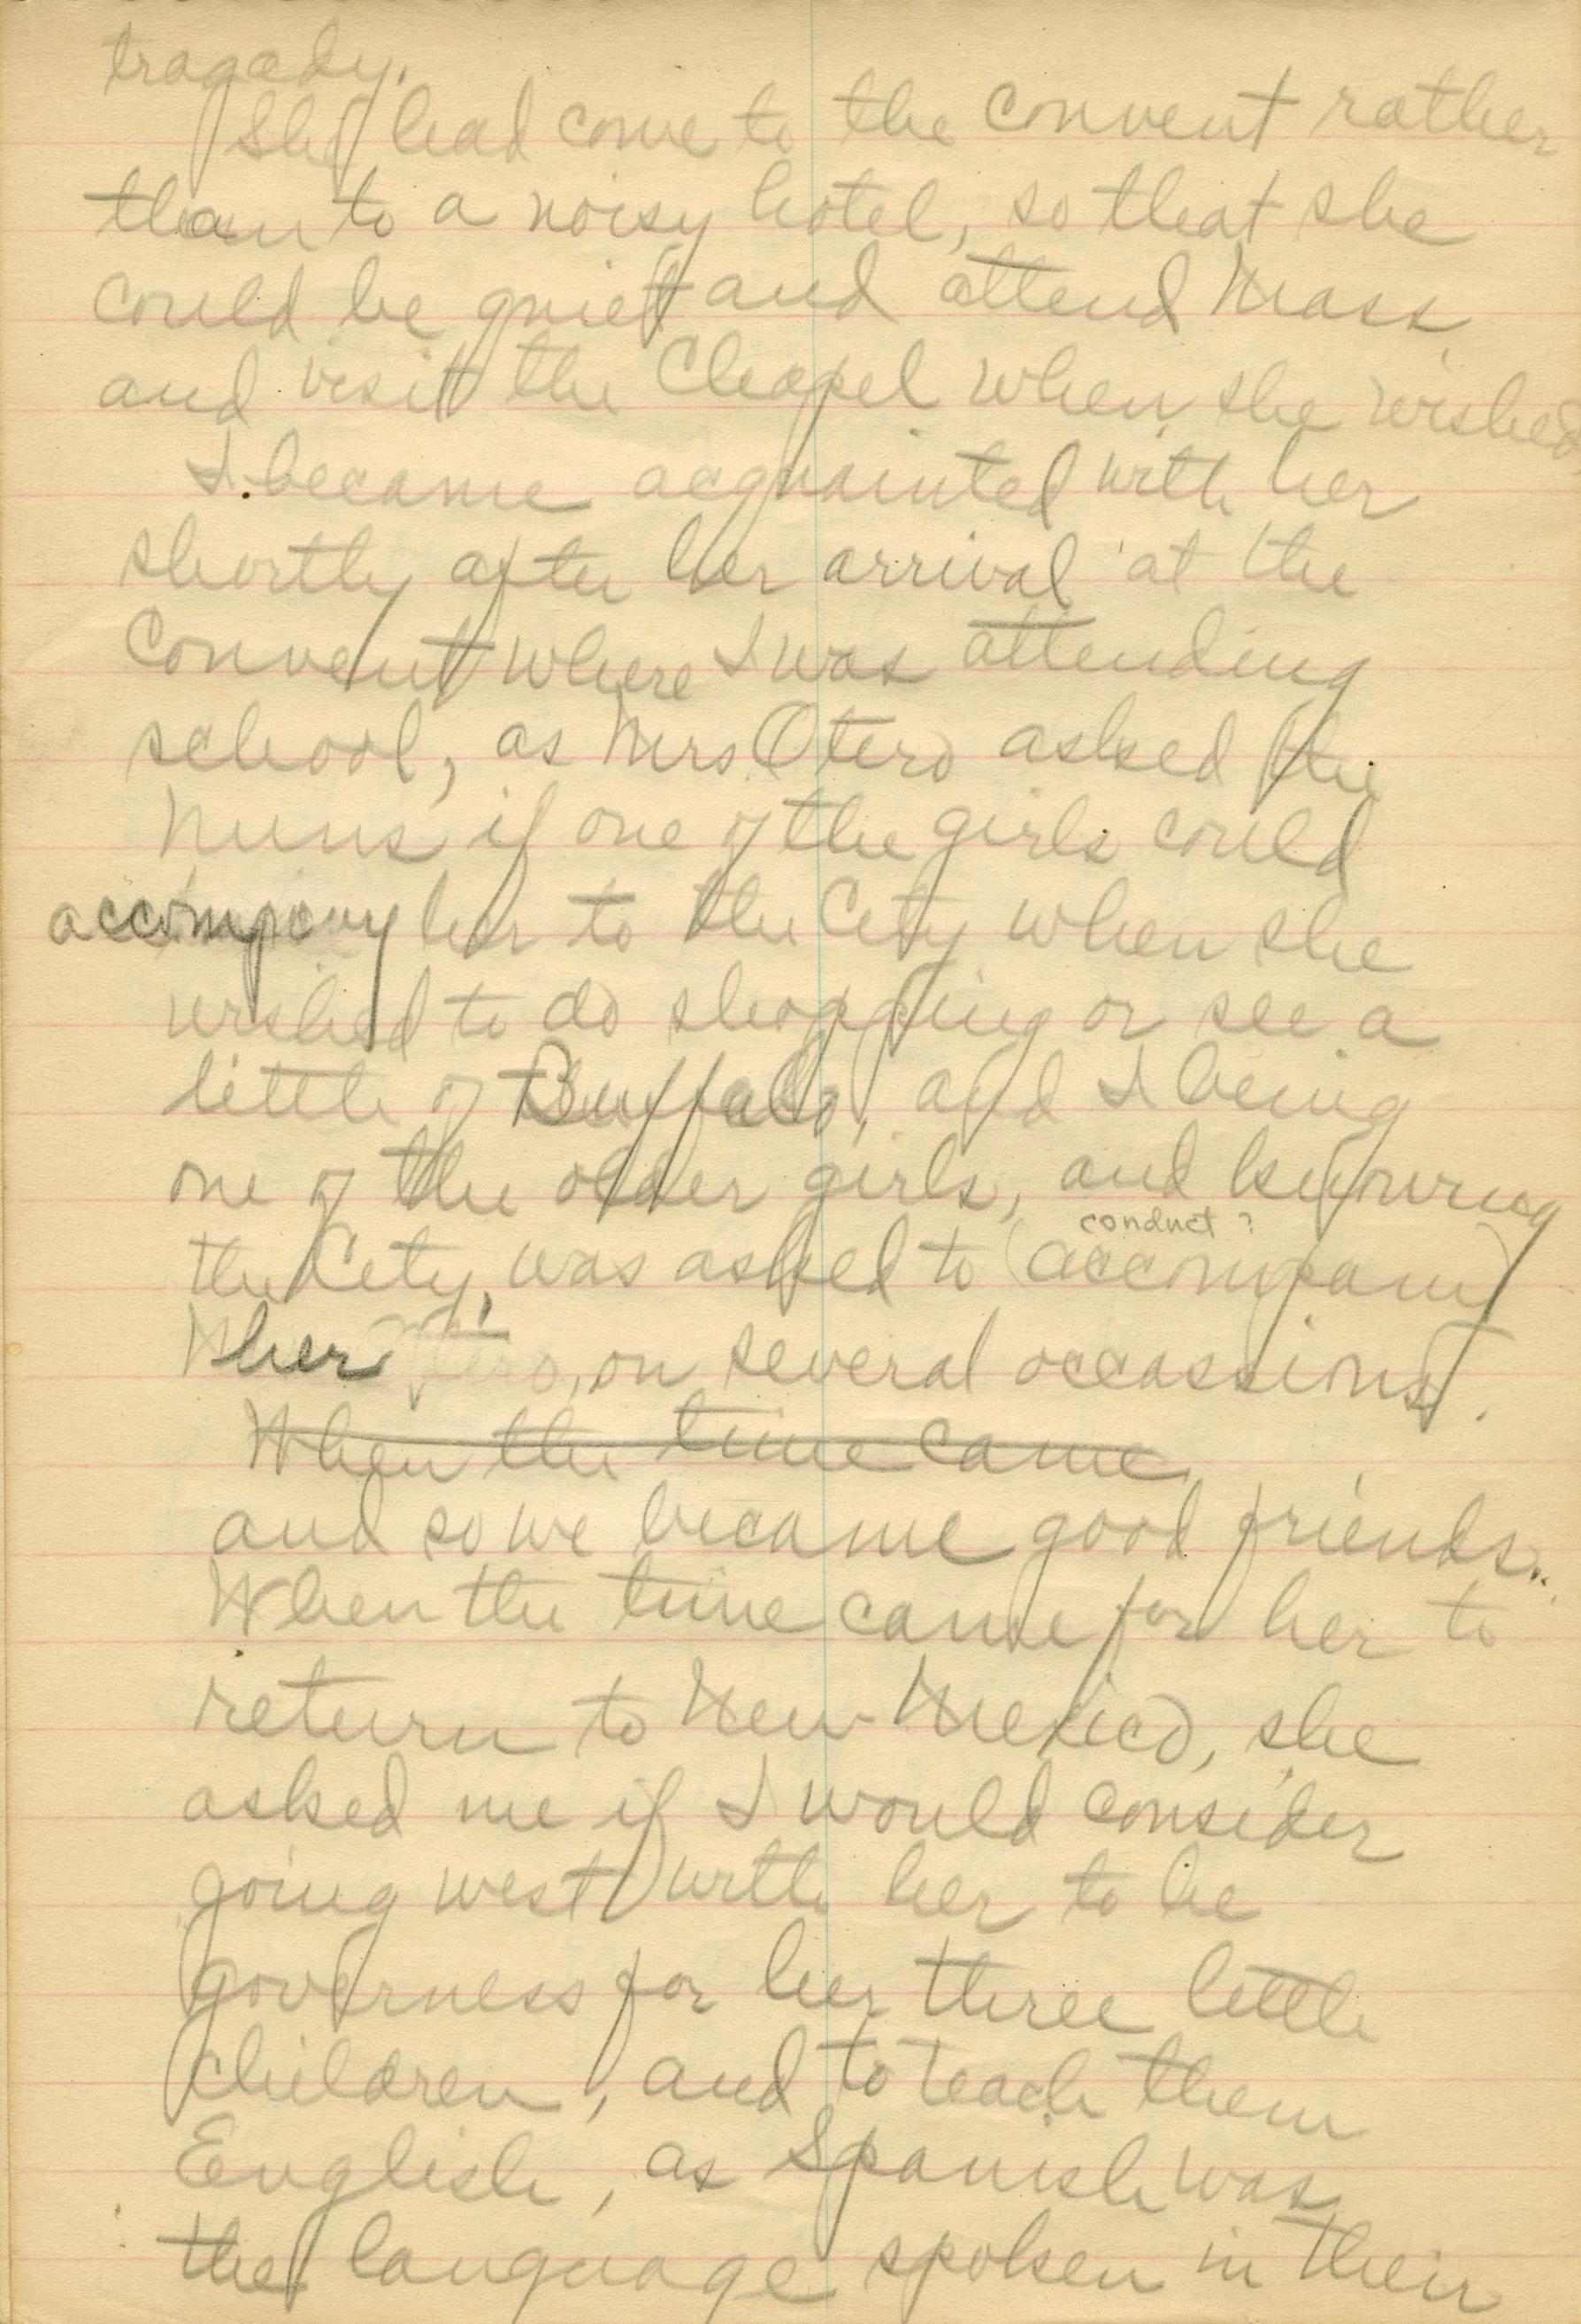 tragady.
She had come to the convent rather
than to a noisy hotel, so that she
could be quiet and attend Mass
and visit the Chapel when she wished.
I became acquainted with her
shortly after her arrival at the
Convent where I was attending
school, as Mrs. Otero asked the
Nuns if one of the girls could
accompany her to the City when she
wished to do shopping or see a
little of Buffalo, and I being
one of the older girls, and knowing
conduct ?
the City, was asked to (accompany)
her on several occassions.
When the time came
and so we became good friends.
When the time came for her to
return to New Mexico, she
asked me if I would consider
going west with her to be
governess for her three little
children, and to teach them
English, as Spanish was
the language spoken in their